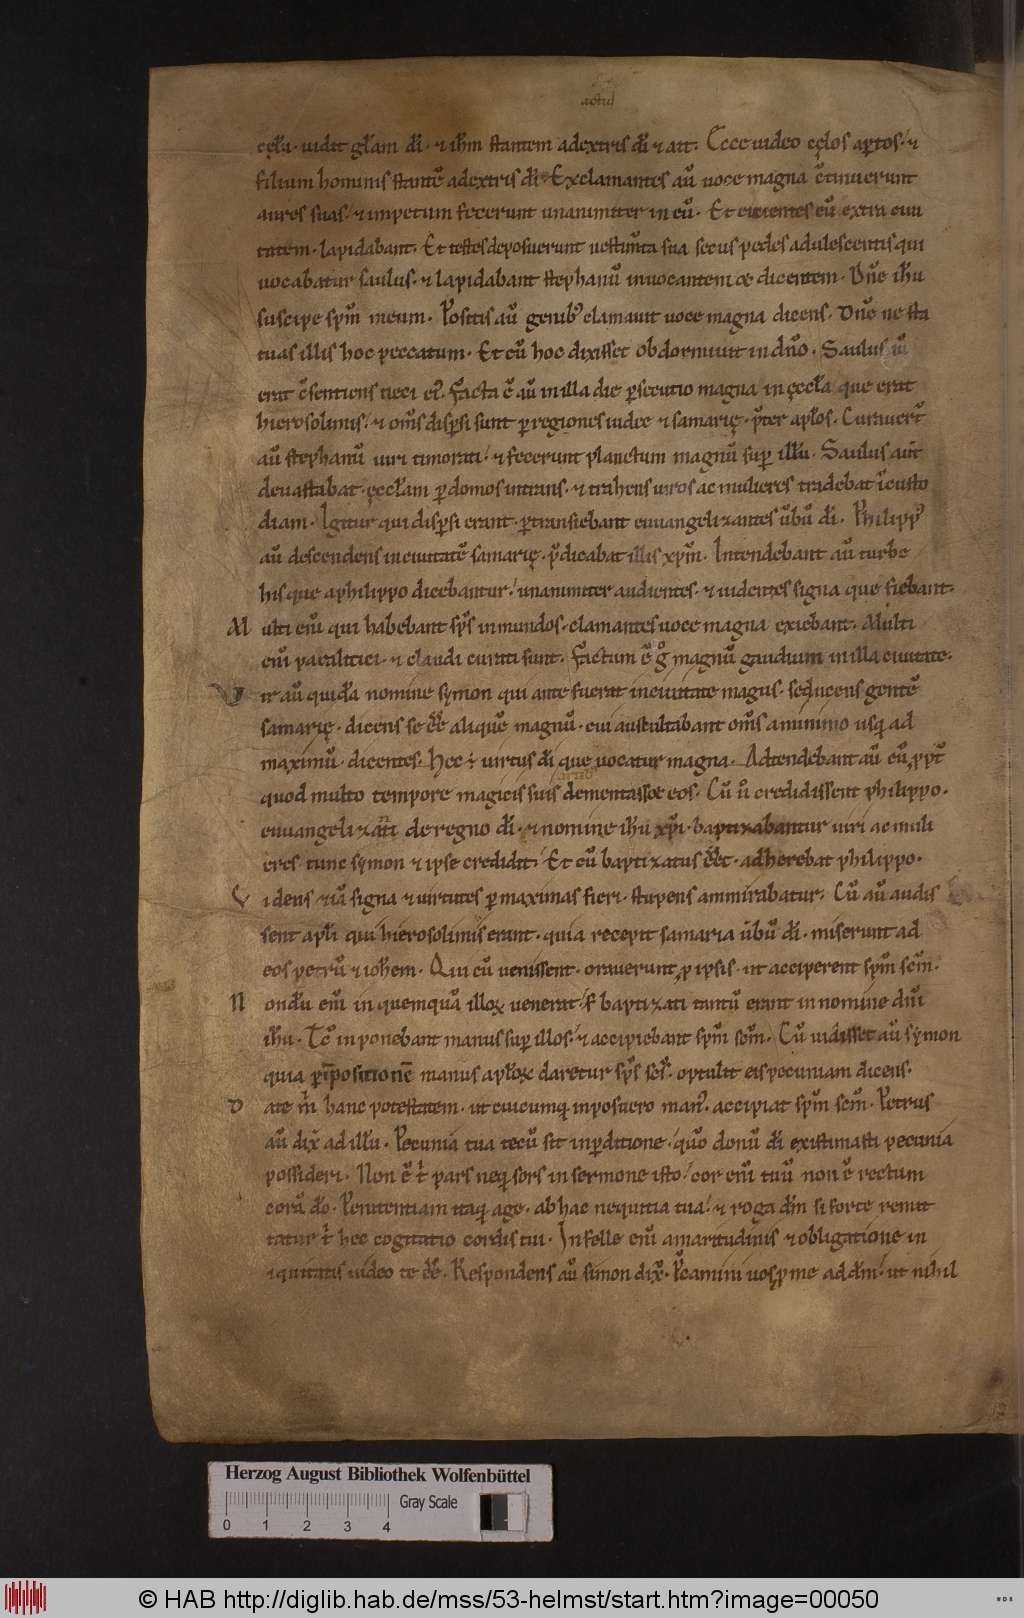 actuū
cęlū. uidit gl̄am dī. ⁊ ih̄m stantem adextris dī ⁊ ait. Ecce uideo cęlos aꝑtos. ⁊
filium hominis stantē adextris dī. Exclamantes aū uoce magna c̄tinuerunt
aures suas. ⁊ impetum fecerunt unanimiter in eū. Et eicientes eū extra ciui
tatem. lapidabant. Et testes deposuerunt uestim̄ta sua secus pedes adulescentis qui
uocabatur saulus. ⁊ lapidabant stephanū inuocantem ⁊ dicentem. Dn̄e ih̄u
suscipe sp̄m meum. Positis aū genibꝰ clamauit uoce magna dicens. Dn̄e ne sta
tuas illis hoc peccatum. Et cū hoc dixisset obdormiuit in dn̄o. Saulus aū
erat c̄sentiens neci eiꝰ. Facta ē aū in illa die ꝑsecutio magna in ęccl̄a que erat
hierosolimis. ⁊ om̄s disꝑsi sunt ꝑ regiones iudee ⁊ samarię. p̄ter apl̄os. Curauer̄t
aū stephanū uiri timorati. ⁊ fecerunt planctum magnū suꝑ illū. Saulus aūt
deuastabat ęccl̄am ꝑ domos intrans. ⁊ trahens uiros ac mulieres tradebat ī custo
diam. Igitur qui disꝑsi erant. ꝑtransiebant euuangelizantes ūbū dī. Philippꝰ
aū descendens in ciuitatē samarię. p̄dicabat illis xp̄m. Intendebant aū turbe
his que a philippo dicebantur. unanimiter audientes. ⁊ uidentes signa que fiebant.
Multi enī qui habebant sp̄s inmundos. clamantes uoce magna exiebant. Multi
enī paralitici. ⁊ claudi curati sunt. Factum ē g̊ magnū gaudium in illa ciuitate.
Vir aū quidā nomine symon qui ante fuerat in ciuitate magus. seducens gentē
samarię. dicens se ēē aliquē magnū. cui auscultabant om̄s a minimo usq; ad
maximū. dicentes. Hec ÷ uirtus dī que uocatur magna. Adtendebant aū eū ꝓpt̄
quod multo tempore magicis suis dementasset eos. Cū ū credidissent philippo.
euuangelizāti de regno dī. ⁊ nomine ih̄u xp̄i. baptizabantur uiri ac muli
eres. tunc symon ⁊ ipse credidit. Et cū baptizatus ēēt. adherebat philippo.
Videns etiā signa ⁊ uirtutes ꝑ maximas fieri. stupens ammirabatur. Cū aū audis
sent apl̄i qui hierosolimis erant. quia recepit samaria ūbū dī. miserunt ad
eos petrū ⁊ ioh̄em. Qui cū uenissent. orauerunt ꝓ ipsis. ut acciperent sp̄m sc̄m.
Nondū enī in quemquā illoꝝ uenerat. s; baptizati tantū erant in nomine dn̄i
ih̄u. Tc̄ inponebant manus suꝑ illos. ⁊ accipiebant sp̄m sc̄m. Cū uidisset aū symon
quia ꝑ īpositionē manus apl̄oꝝ daretur sp̄s sc̄s. optulit eis pecuniam dicens.
Date m̄ hanc potestatem. ut cuicumq; inposuero manꝰ. accipiat sp̄m sc̄m. Petrus
aū dix̄ ad illū. Pecunia tua tecū sit in ꝑditione. quō donū dī existimasti pecunia
possideri. Non ē t̄ pars neq; sors in sermone isto. cor enī tuū non ē rectum
corā dō. Penitentiam itaq; age. ab hac nequitia tua. ⁊ roga dm̄ si forte remit
tatur t̄ hec cogitatio cordis tui. In felle enī amaritudinis ⁊ obligatione in
iquitatis uideo te ēē. Respondens aū simon dix̄. Precamini uos ꝓ me ad dm̄. ut nihil
Herzog August Bibliothek Wolfenbüttel
Gray Scale
0 1 2 3 4
© HAB http://diglib.hab.de/mss/53-helmst/start.htm?image=00050